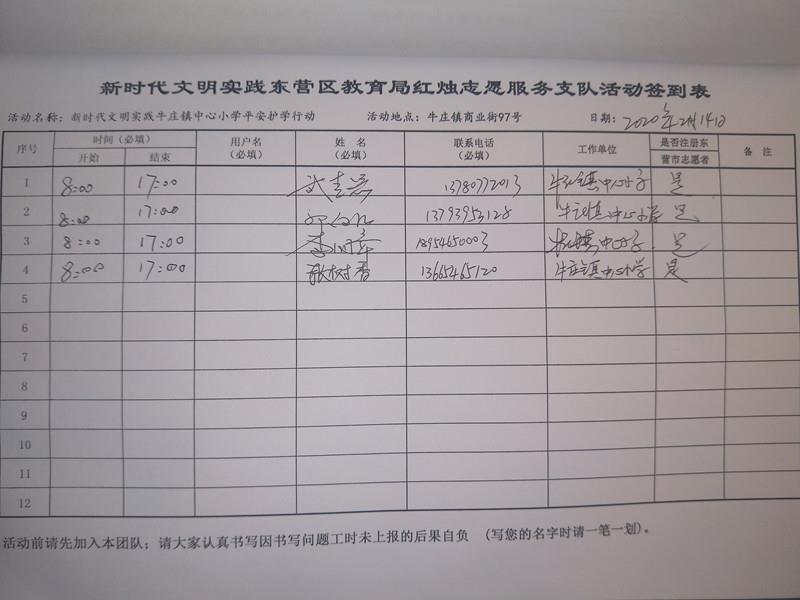 新时代文明实践东营区教育局红烛志愿服务支队活动签到表
活动名称：新时代文明实践牛庄镇中心小学平安护学行动 活动地点：牛庄镇商业街97号 日期：2020年2月14日
序号 时间（必填） 用户名（必填） 姓名（必填） 联系电话（必填） 工作单位 是否注册东营市志愿者 备注
开始 结束
1 8:00 17:00 13780772013 牛庄镇中心小学 是
2 8:00 17:00 13793952128 牛庄镇中心小学 是
3 8:00 17:00 18954650003 牛庄镇中心小学 是
4 8:00 17:00 张树香 13665465120 牛庄镇中心小学 是
5
6
7
8
9
10
11
12
活动前请先加入本团队；请大家认真书写因书写问题工时未上报的后果自负 （写您的名字时请一笔一划）。